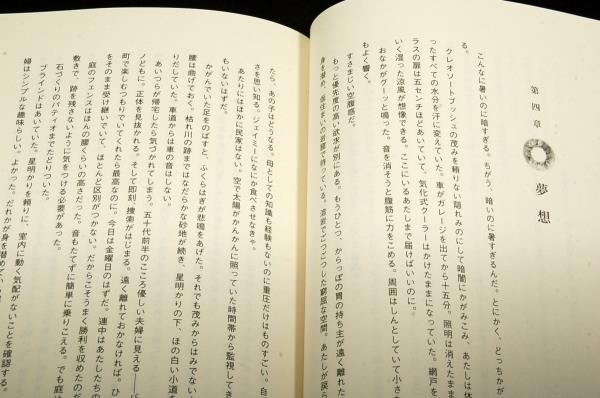 第四章
夢想
こんなに暑いのに暗すぎる。ちがう、暗いのに暑すぎるんだ。とにかく、どっちかが
クレオソートブッシュの茂みを頼りない隠れみのにして暗闇にかがみこみ、あたしは体
ったすべての水分を汗に変えていた。車がガレージを出てから十五分。照明は消えたまま
ラスの扉は五センチほどあいていて、気化式クーラーはかけたままになっていた。網戸を
い湿った涼風が想像できる。ここにいるあたしまで届けばいいのに。
おなかがグーッと鳴った。音を消そうと腹筋に力をこめる。周囲はしんとしていて小さな
もよく響く。
すさまじい空腹感だ。
もっと優先度の高い欲求が別にある。もうひとつ、からっぽの胃の持ち主が遠く離れた
身を潜め、仮住まいの岩窟で待っている。溶岩でごつごつした窮屈な空間。あたしが戻ら
たら、あの子はどうなる。母としての知識も経験もないのに重圧だけはものすごい。自
さを思い知る。ジェイミーになにか食べさせなきゃ。
あたりにはほかに民家はない。空で太陽がかんかんに照っていた時間帯から監視してき
もいないはずだ。
かがんでいた足をのばすと、ふくらはぎが悲鳴をあげた。それでも茂みからはみでない
腰は曲げておく。枯れ川の跡まではなだらかな砂地が続き、星明かりの下、ほの白い小道を
りだしていた。車道からは車の音はしない。
あいつらが帰宅したら気づかれてしまう。五十代前半のこころ優しい夫婦に見える――
ノどもに。正体を見抜かれる。そして即刻、捜索がはじまる。遠く離れておかなければ。ひ
町で楽しむつもりでいてくれたら最高なのに。今日は金曜日のはずだ。連中はあたしたちの
をそのまま受け継いでいて、ほとんど区別がつかない。だからこそうまく勝利を収めたのだ
庭のフェンスはほんの腰くらいの高さだった。音もたてずに簡単に乗りこえる。でも庭は
敷きで、跡を残さないように気をつける必要があった。
石づくりのパティオまでたどりついた。
ブラインドはあいていた。星明かりを頼りに、室内に動く気配がないことを確認する。
婦はシンプルな趣味らしい。よかった。だれかが身を潜めて